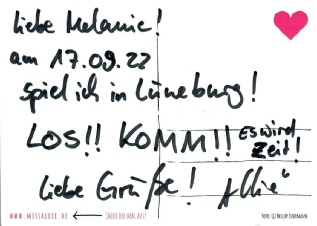 liebe Melanie!
am 17.09.22
spiel ich in Lüneburg!
LOS!! KOMM!! es wird
Zeit!
liebe Grüße! Allie
WWW.MISSALLIE.DE ← CHECK DEE MAL AUS!
FOTO: (C) PHILIPP EISERMANN